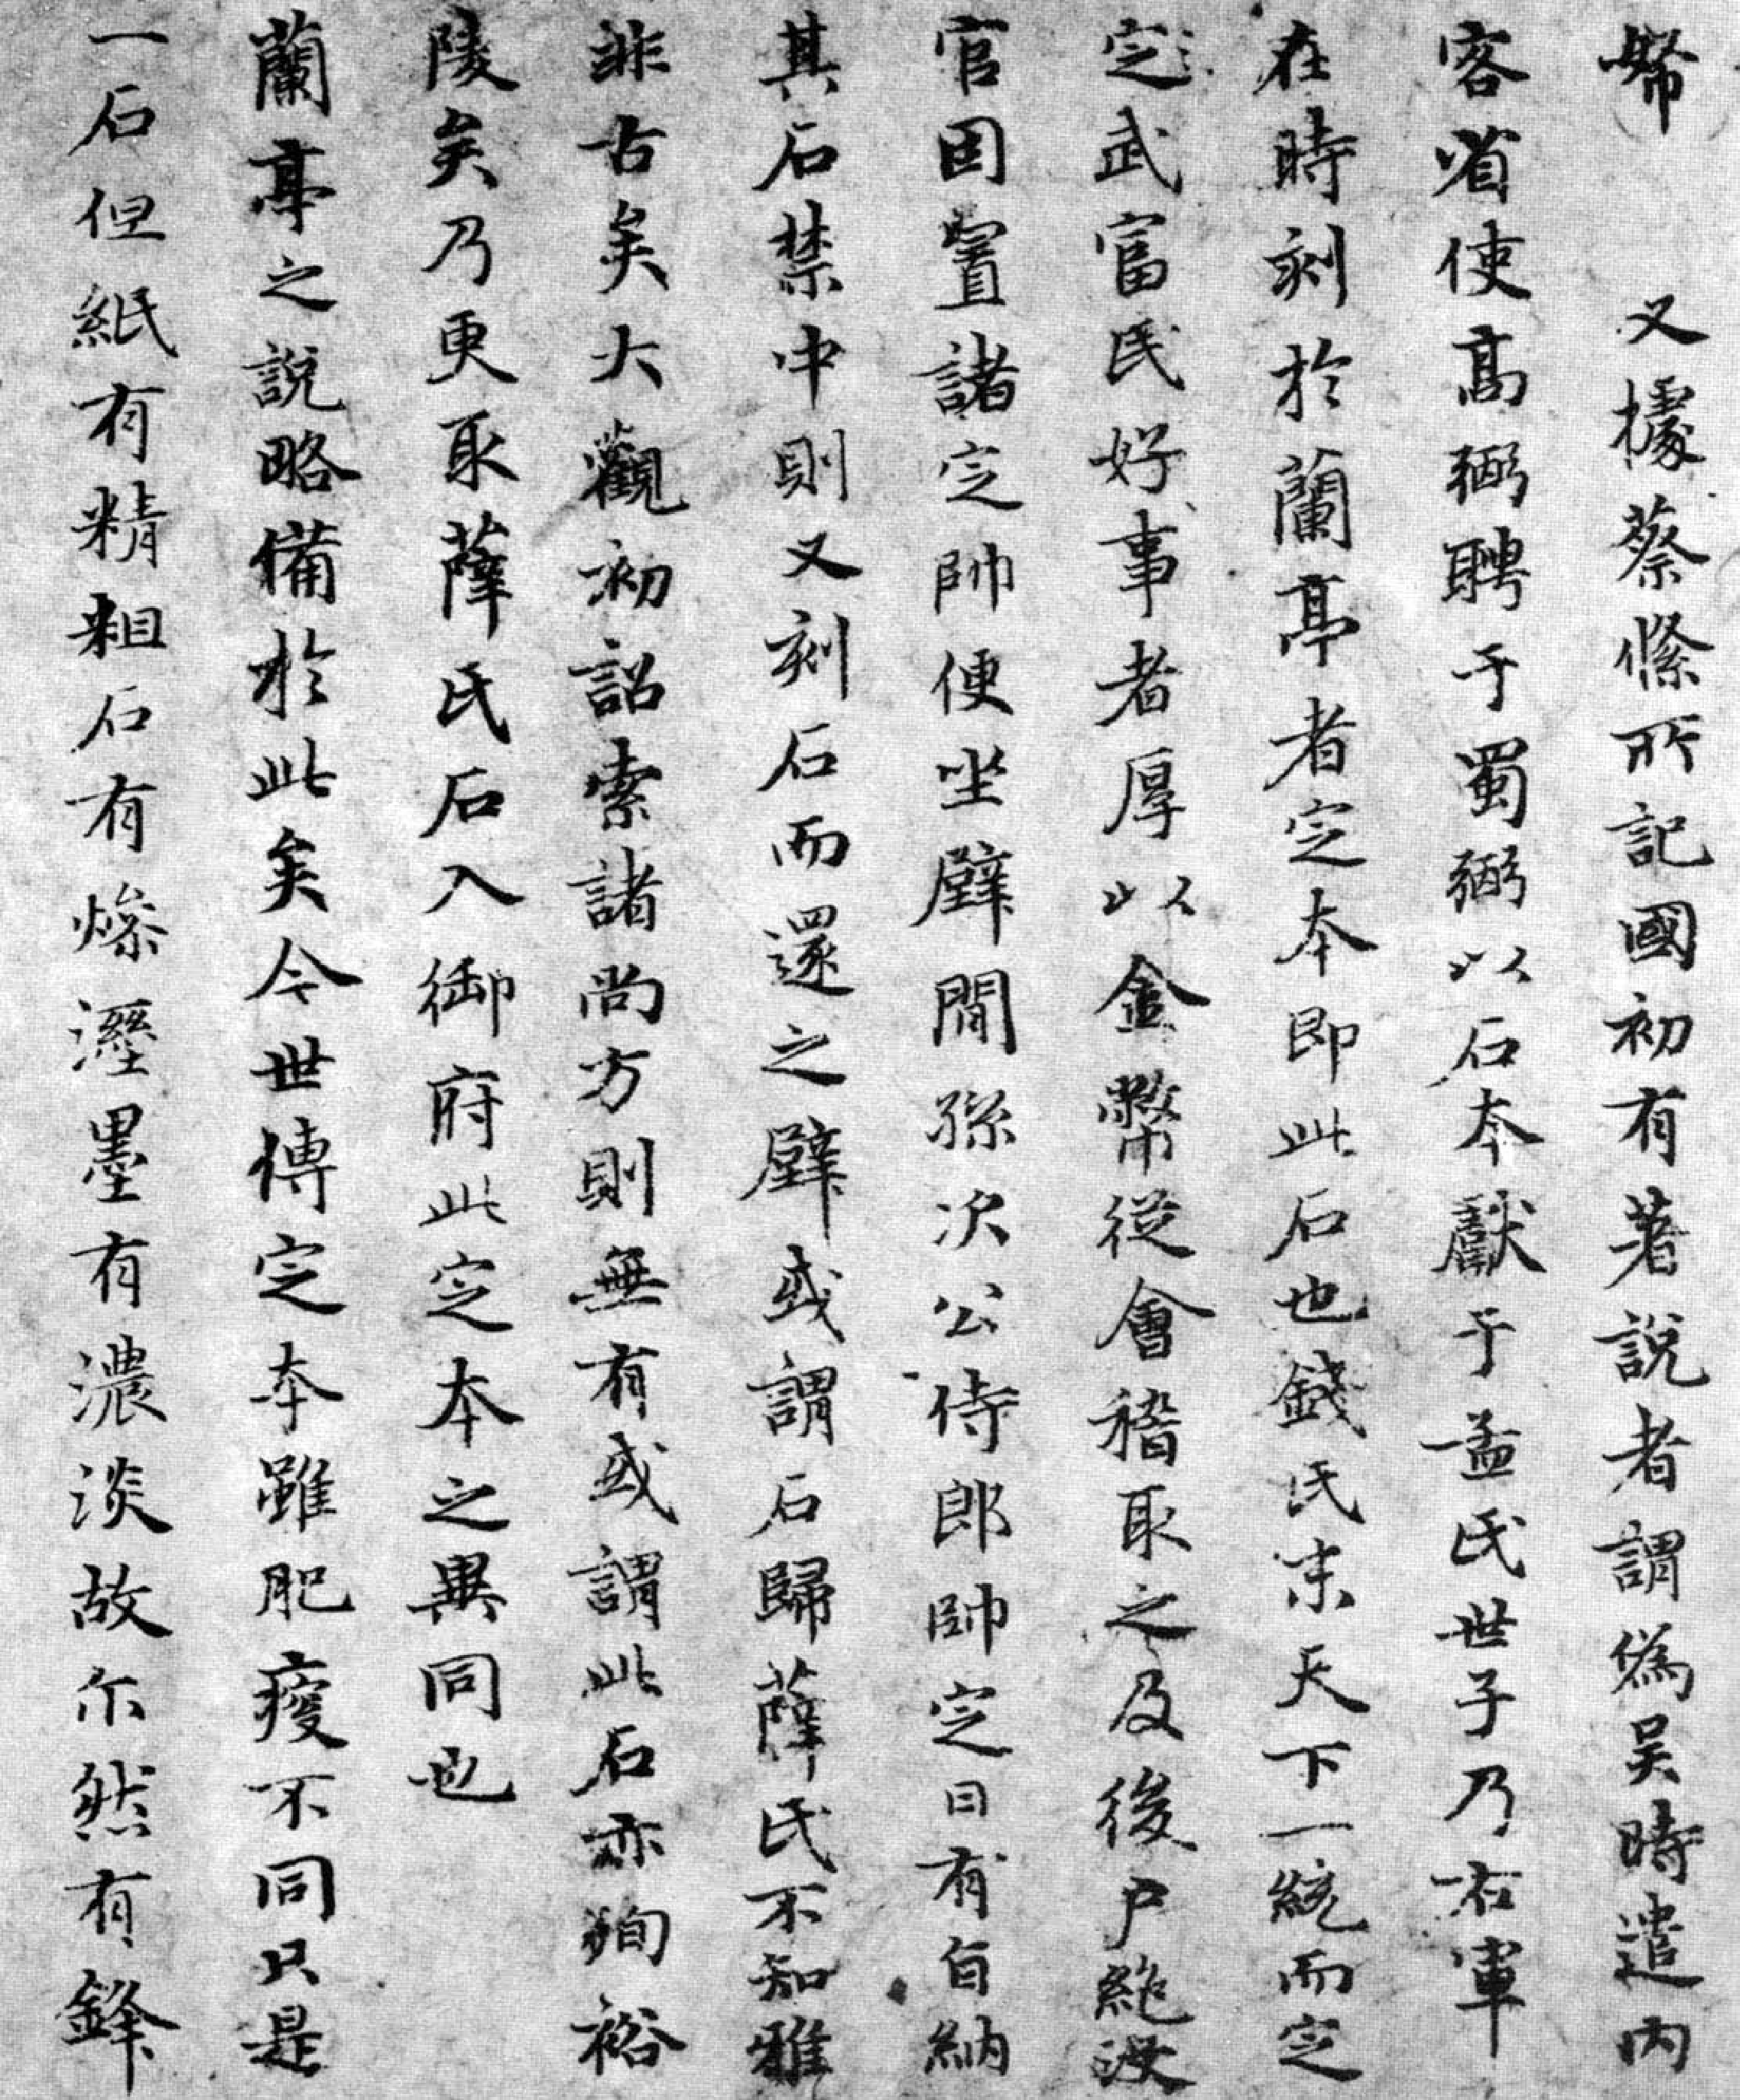 帑　又據蔡絛所記國初有著說者謂偽吳時遣內
客省使高弼聘于蜀弼以石本獻于孟氏世子乃右軍
在時刻於蘭亭者定本即此石也錢氏末天下一統而定
定武富民好事者厚以金幣從會稽取之及後戶絕沒
官因置諸定帥便坐壁間孫次公侍郎帥定日有旨納
其石禁中則又刻石而還之壁或謂石歸薛氏不知雅
非古矣大觀初詔索諸尚方則無有或謂此石亦殉裕
陵矣乃更取薛氏石入御府此定本之異同也
蘭亭之說略備於此矣今世傳定本雖肥瘦不同只是
一石但紙有精粗石有燥溼墨有濃淡故尒然有鋒